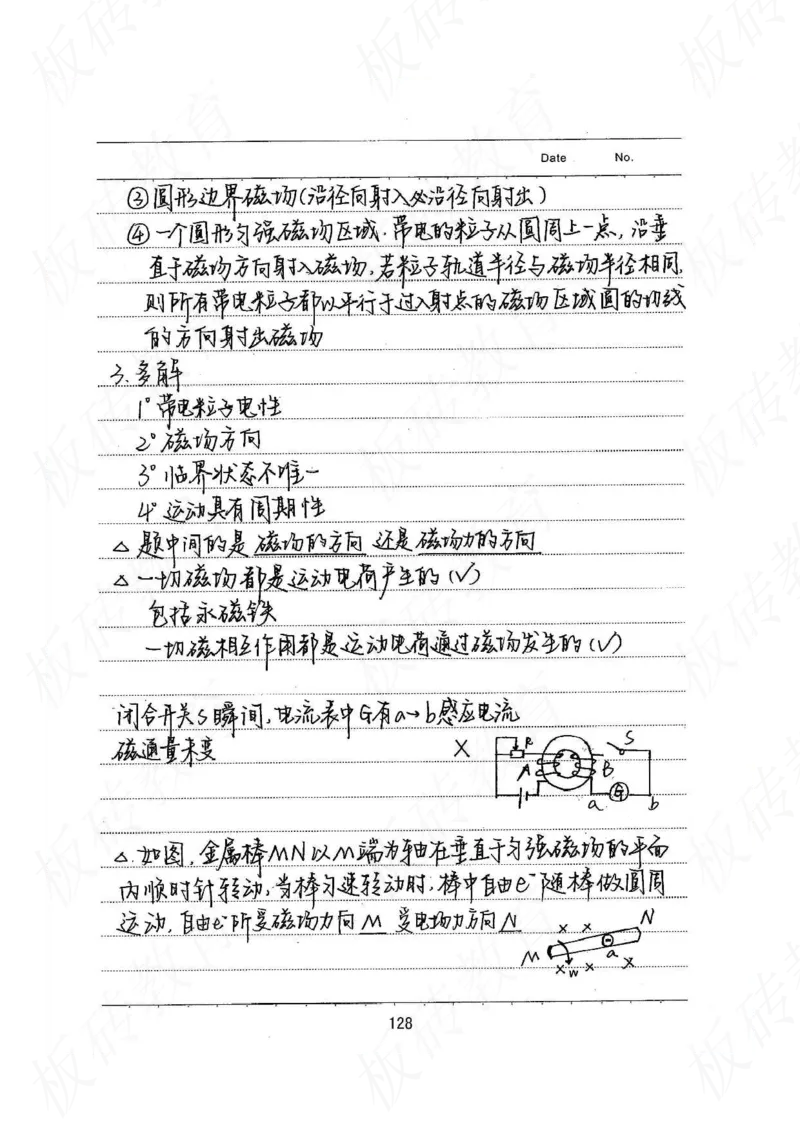 Date No.
③圆形边界磁场(沿径向射入必沿径向射出)
④一个圆形匀强磁场区域.带电的粒子从圆周上一点,沿垂
直于磁场方向射入磁场,若粒子轨道半径与磁场半径相同,
则所有带电粒子都以平行于过入射点的磁场区域圆的切线
的方向射出磁场
3.多解
1°带电粒子电性
2°磁场方向
3°临界状态不唯一
4°运动具有周期性
△题中问的是磁场的方向还是磁场力的方向
△一切磁场都是运动电荷产生的(√)
包括永磁铁
一切磁相互作用都是运动电荷通过磁场发生的(√)
闭合开关S瞬间,电流表中G有a→b感应电流
磁通量未变 X
R S
A B
G
a b
△.如图,金属棒MN以M端为轴在垂直于匀强磁场的平面
内顺时针转动,当棒匀速转动时,棒中自由e⁻随棒做圆周
运动,自由e⁻所受磁场力向M 受电场力方向N
x x N
M a
x w x x
128
板砖教育